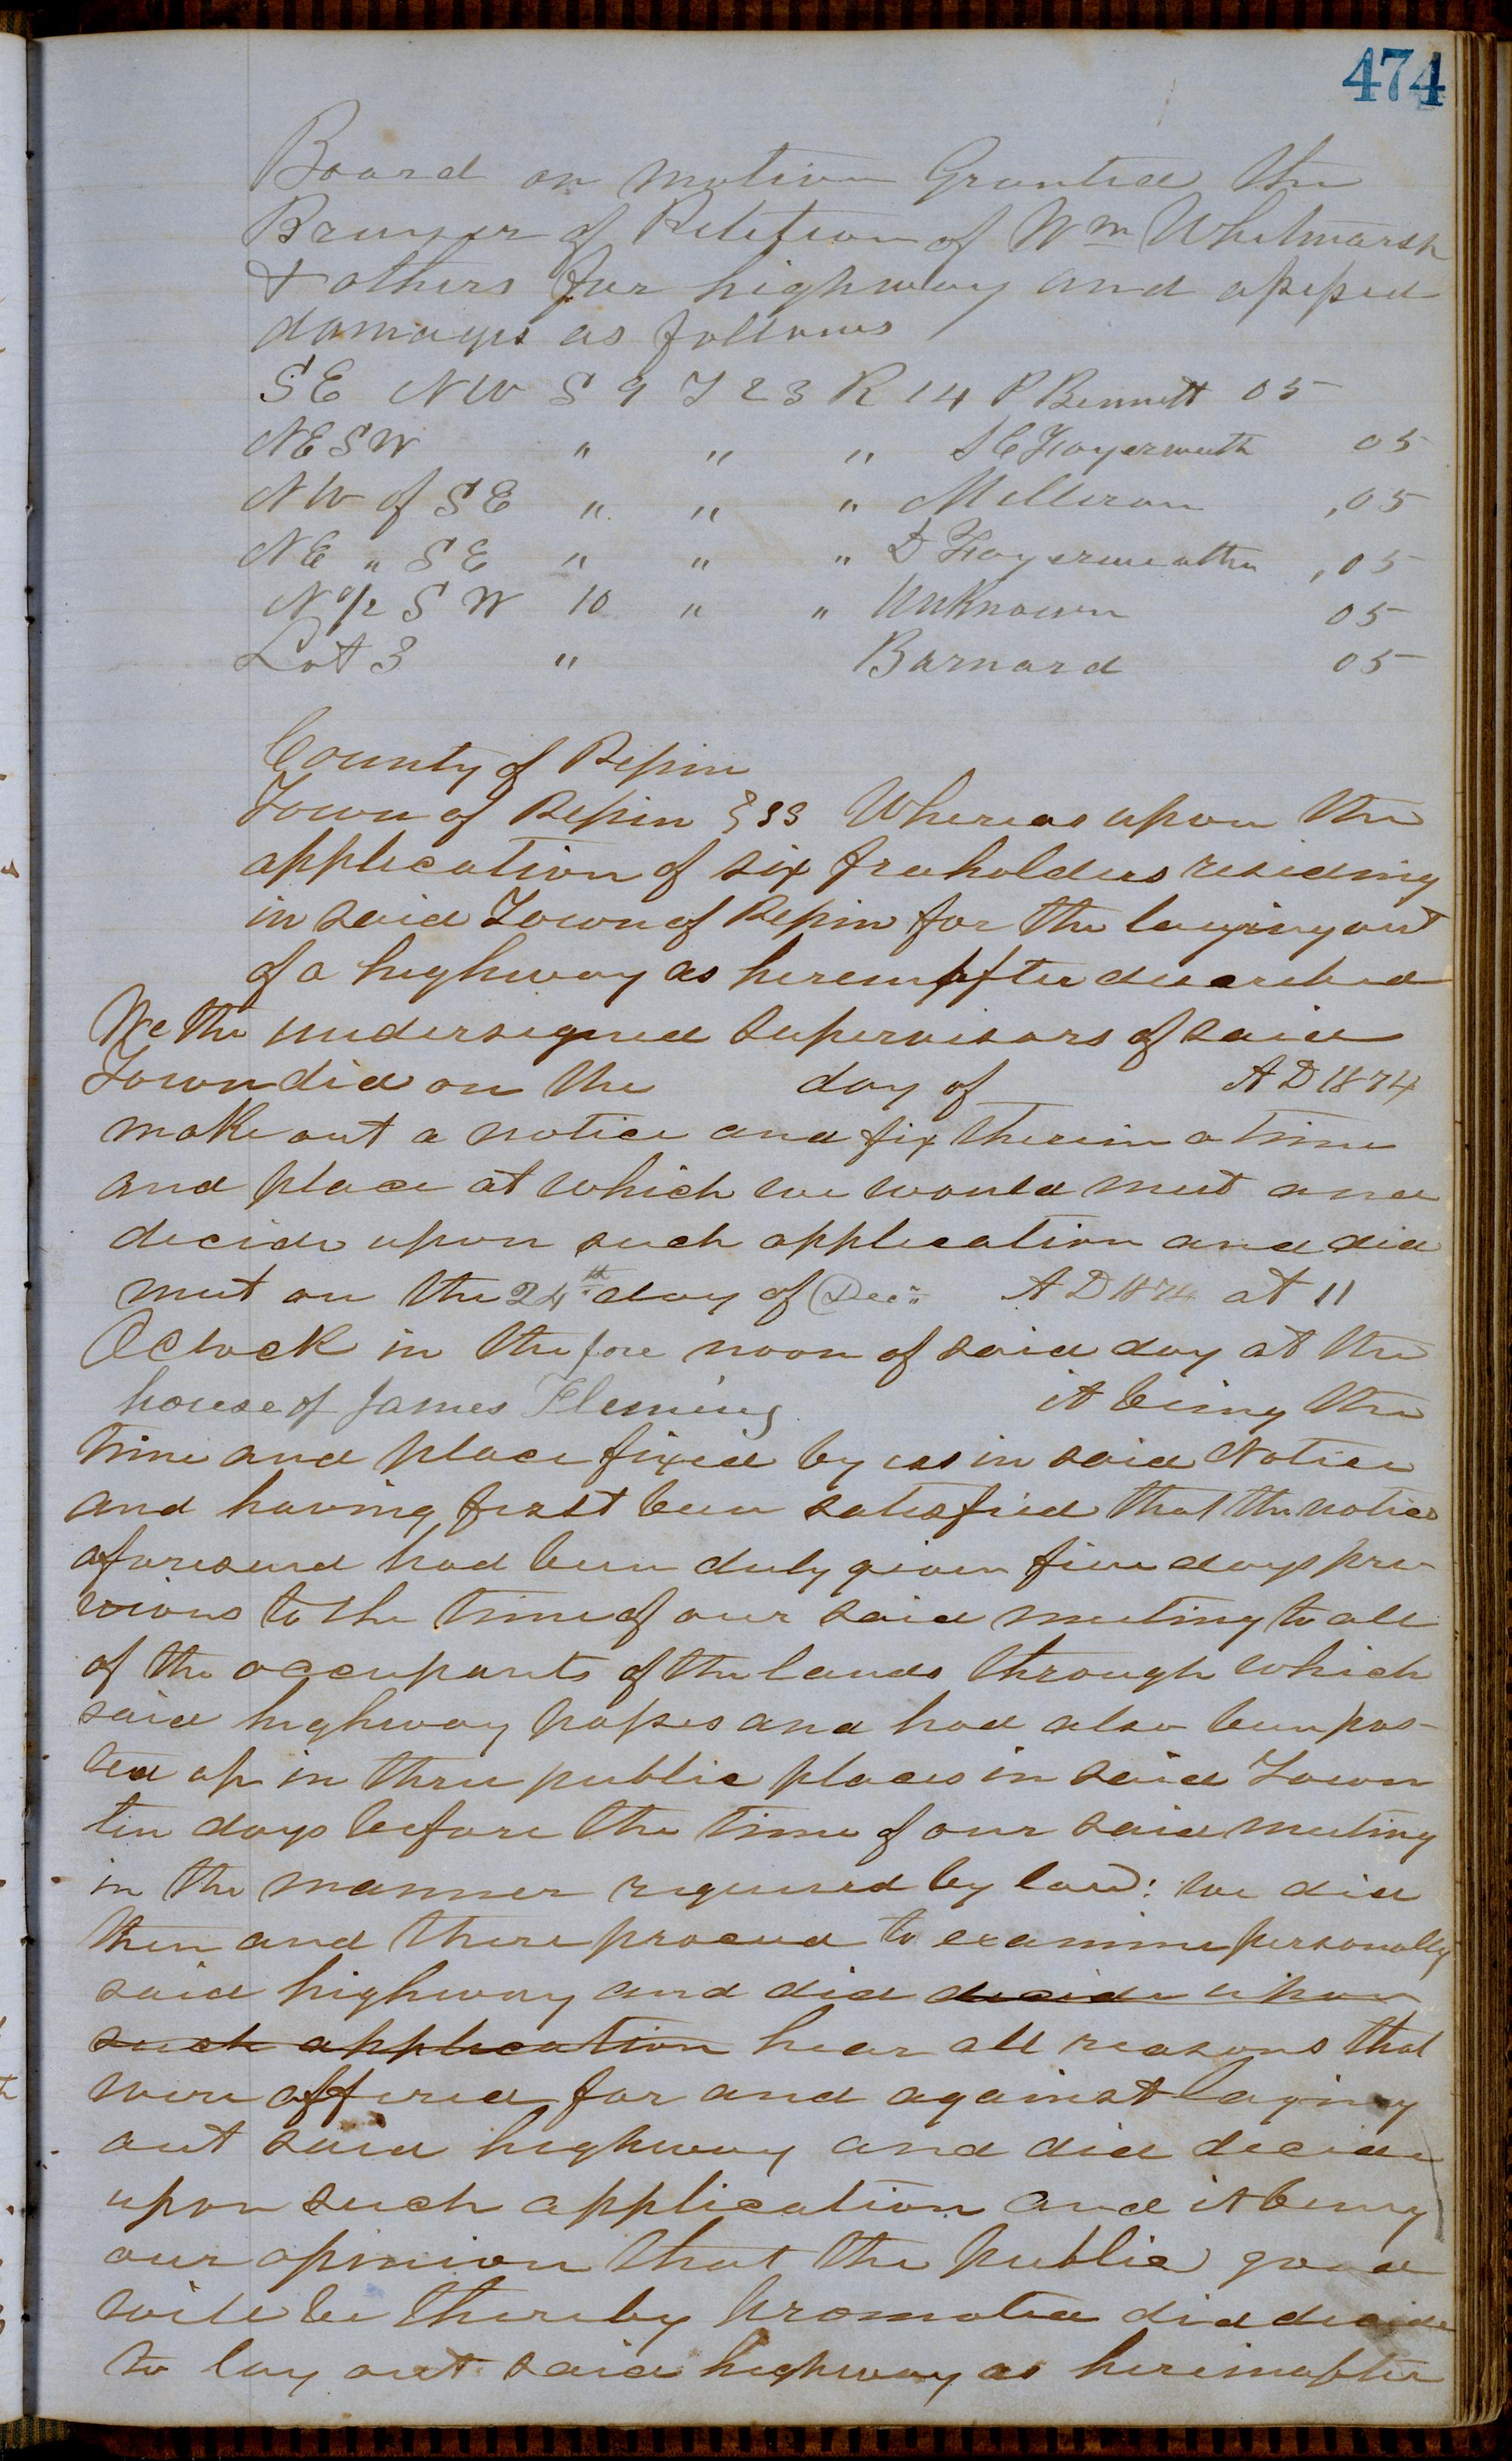 474
Board on motion Granted the
Prayer of Petition of Wm Whitmarsh
& others for highway and assessed
damages as follows
SE NW S 9 T 23 R 14 P Bennett 05
NE SW " " " 05
NW of SE " " " Milliron ,05
NE " SE " " " D Fayerweather ,05
N 1/2 SW 10 " " Unknown 05
Lot 3 " Barnard 05
County of Pepin
Town of Pepin } ss Whereas upon the
application of six freeholders residing
in said Town of Pepin for the laying out
of a highway as hereinafter described
We the undersigned supervisors of said
Town did on the day of A D 1874
make out a notice and fix therein a time
and place at which we would meet and
decide upon such application and did
meet on the 24th day of Dec A D 1874 at 11
OClock in the fore noon of said day at the
house of James Fleming it being the
time and place fixed by us in said Notice
and having first been satisfied that the notice
aforesaid had been duly given five days pre-
vious to the time of our said meeting to all
of the occupants of the lands through which
said highway passes and had also been pos-
ted up in three public places in said Town
ten days before the time of our said meeting
in the manner required by law: we did
then and there proceed to examine personally
said highway and did decide upon
such application hear all reasons that
were offered for and against laying
out said highway and did decide
upon such application and it being
our opinion that the public good
will be thereby promoted did decide
to lay out said highway as hereinafter